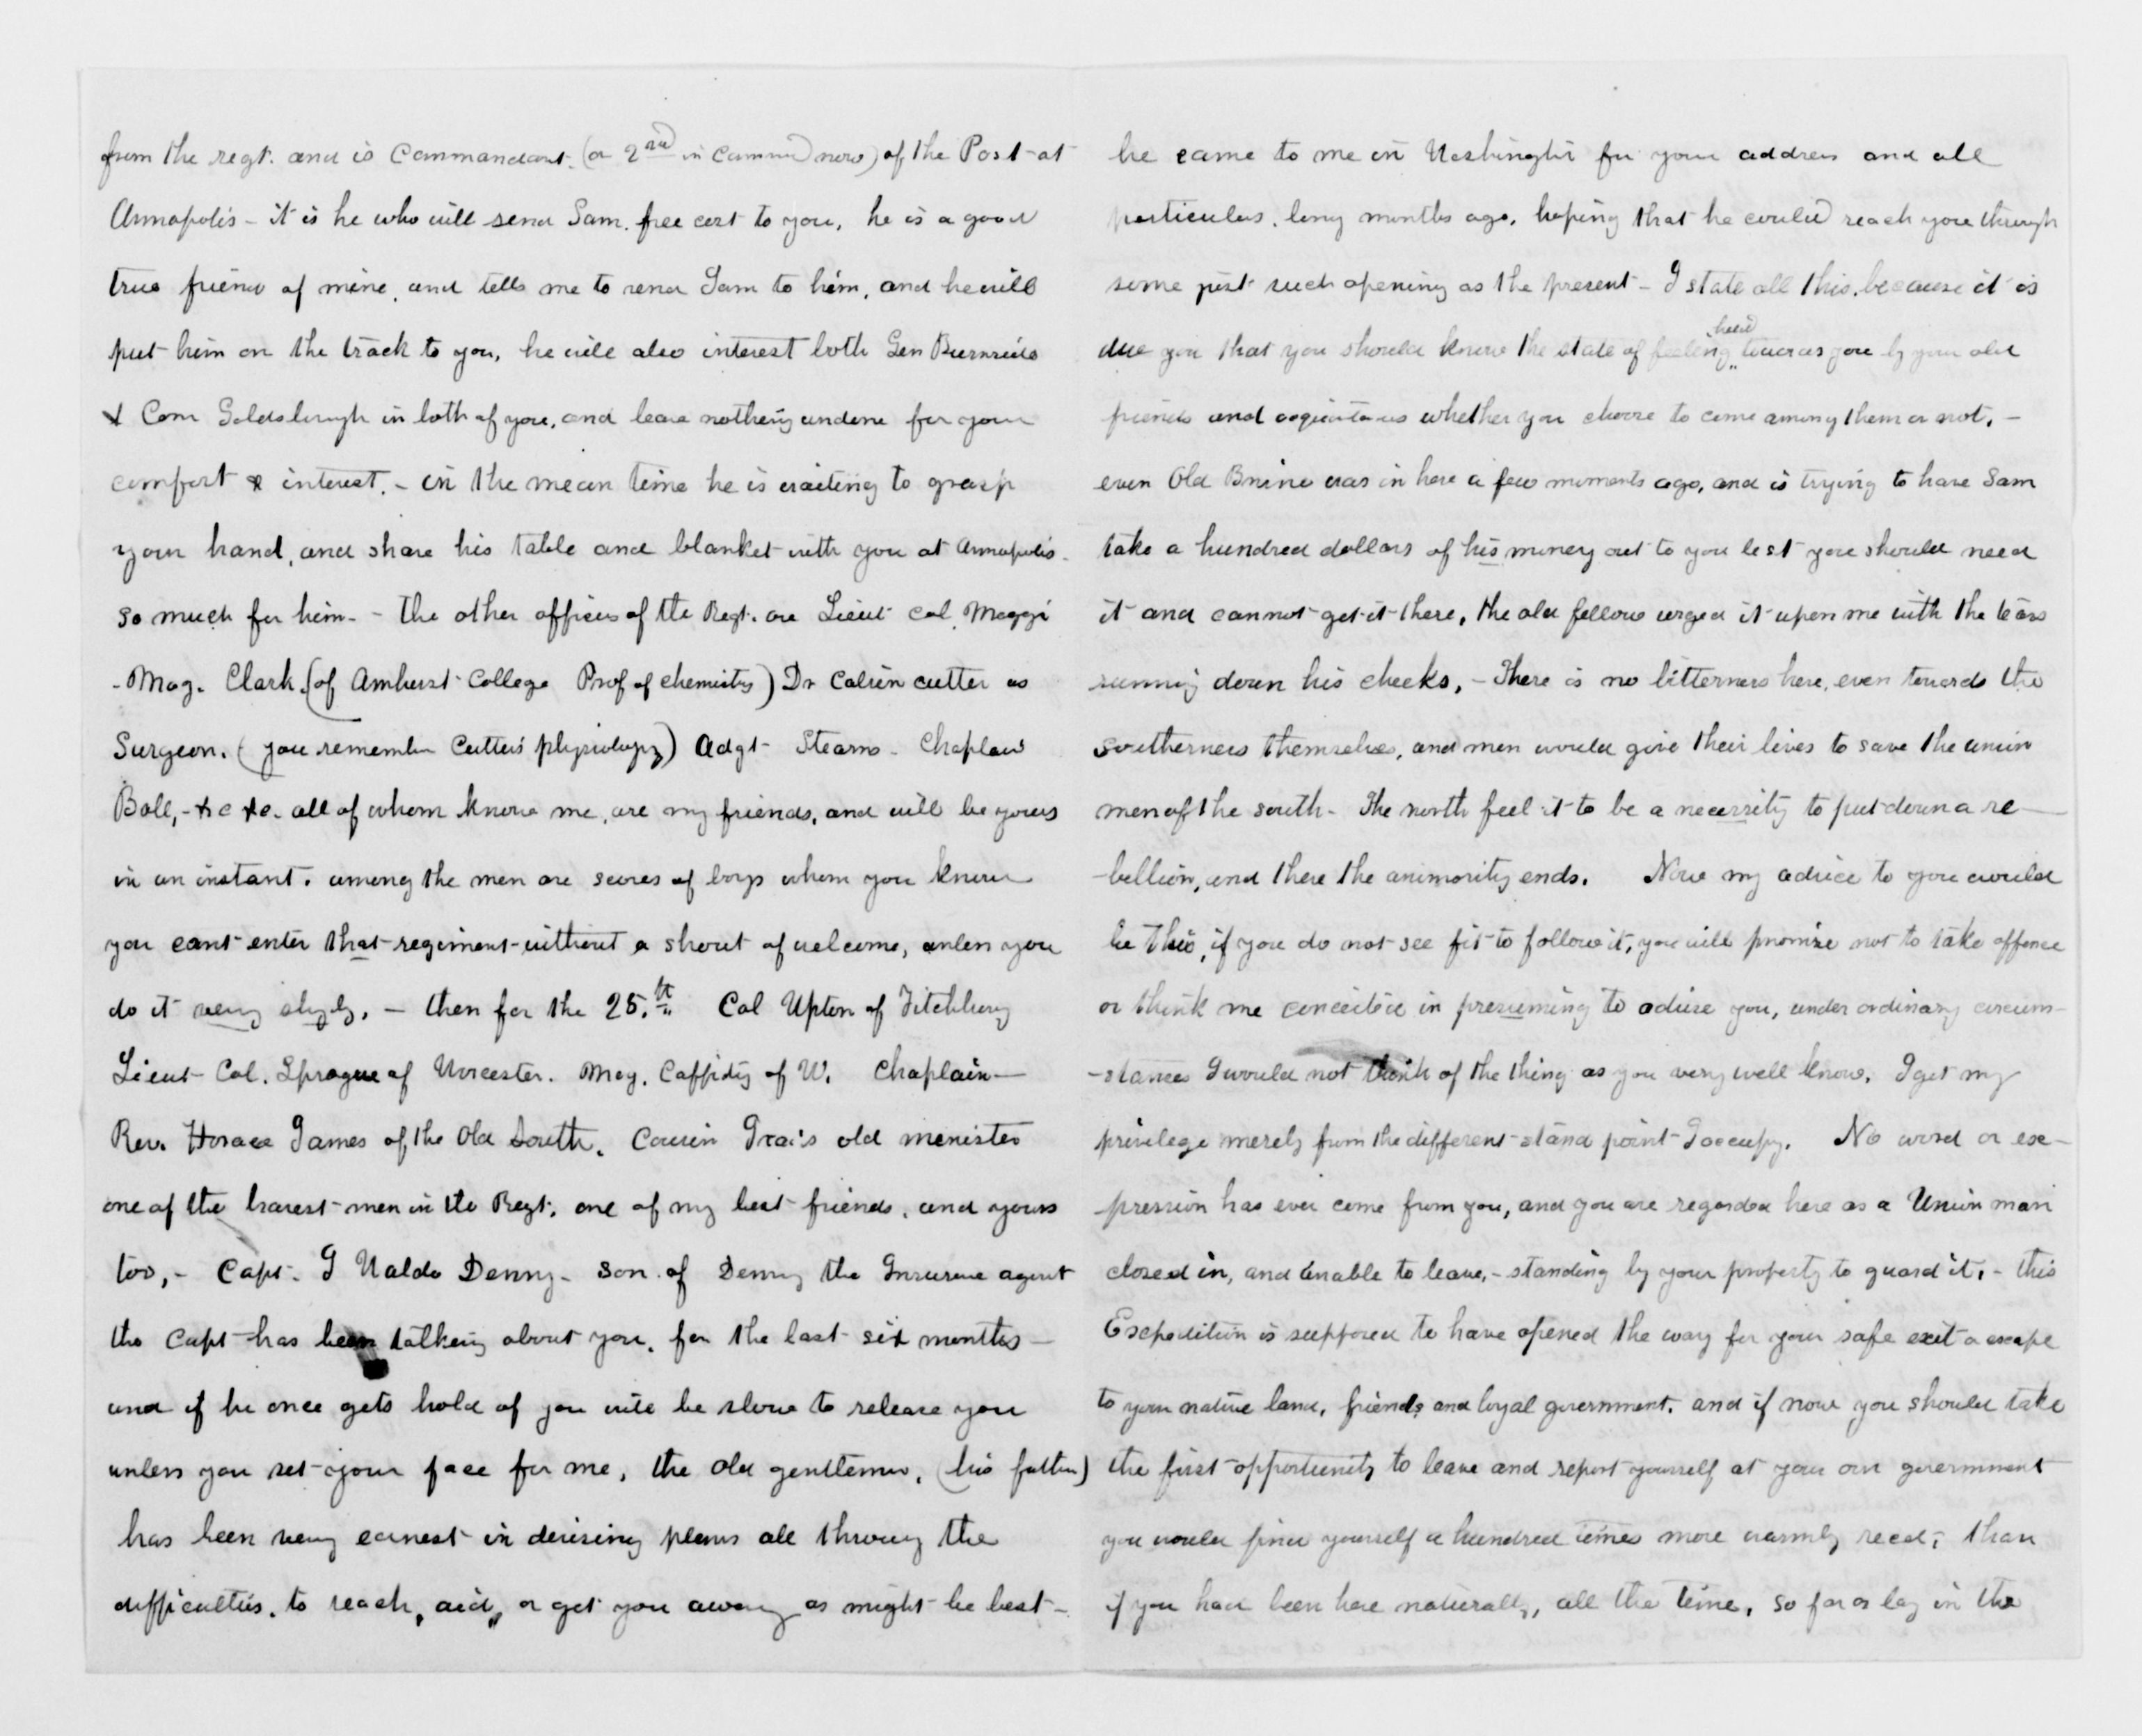 from the regt. and is Commandant. (or 2nd in command now) of the Post at
Annapolis - it is he who will send Sam. free cost to you, he is a good
true friend of mine, and tells me to send Sam to him, and he will
put him on the track to you, he will also interest both Gen Burnside
& Com Goldsborough in both of you, and leave nothing undone for your
comfort & interest. - in the mean time he is waiting to grasp
your hand, and share his table and blanket with you at Annapolis.
so much for him. - the other officers of the Regt. are Lieut Col. Maggi
- Mag. Clark. (of Amhurst College Prof of chemistry) Dr Calvin cutter as
Surgeon. (you remember Cutter's physiology) Adgt Stearns - Chaplain
Ball, - &c &c. all of whom know me, are my friends, and will be yours
in an instant. among the men are scores of boys whom you know
you cant enter that regiment without a shout of welcome, unless you
do it very slyly, - then for the 25.th Col Upton of Fitchburg
Lieut Col. Sprague of Worcester. Mag. Caffidy of W. Chaplain
Rev. Horace James of the Old South. Cousin Ira's old minister
one of the bravest men in the Regt. one of my best friends, and yours
too, - Capt. I Waldo Denny - son of Denny the Insurance agent
the Capt has been talking about you, for the last six months -
and if he once gets hold of you will be slow to release you
unless you set your face for me, the old gentleman, (his father)
has been very earnest in devising plans all throug the
difficulties, to reach, aid, or get you away as might be best -
he came to me in Washington for your address and all
particulars, long months ago, hoping that he could reach you through
some just such opening as the present - I state all this, because it is
due you that you should know the state of feeling held towards you by your old
friends and acquaintances whether you choose to come among them or not. -
even Old Brine was in here a few moments ago, and is trying to have Sam
take a hundred dollars of his money out to you lest you should need
it and cannot get it there, the old fellow urged it upon me with the tears
running down his cheeks, - There is no bitterness here, even towards the
southerners themselves, and men would give their lives to save the union
men of the south - The north feel it to be a necessity to put down a re
-bellion, and there the animosity ends. Now my advice to you would
be this, if you do not see fit to follow it, you will promise not to take offence
or think me conceited in presuming to advise you, under ordinary circum-
-stances I would not think of the thing as you very well know. I get my
privilege merely from the different stand point I occupy. No word or ex-
pression has ever come from you, and you are regarded here as a Union man
closed in, and unable to leave, - standing by your property to guard it, - this
Expedition is supposed to have opened the way for your safe exit or escape
to your native land, friends and loyal government. and if now you should take
the first opportunity to leave and report yourself at your own government
you would find yourself a hundred times more warmly recd, than
if you had been here naturally, all the time, so far as lay in the